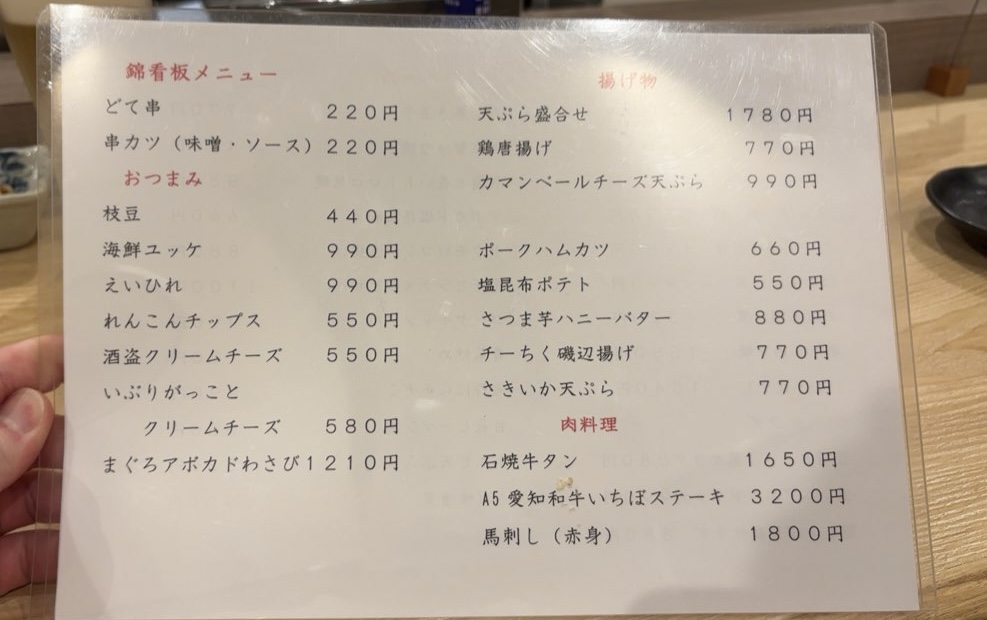 錦看板メニュー
どて串 220円
串カツ（味噌・ソース） 220円
おつまみ
枝豆 440円
海鮮ユッケ 990円
えいひれ 990円
れんこんチップス 550円
酒盗クリームチーズ 550円
いぶりがっこと
クリームチーズ 580円
まぐろアボカドわさび 1210円
揚げ物
天ぷら盛合せ 1780円
鶏唐揚げ 770円
カマンベールチーズ天ぷら 990円
ポークハムカツ 660円
塩昆布ポテト 550円
さつま芋ハニーバター 880円
チーちく磯辺揚げ 770円
さきいか天ぷら 770円
肉料理
石焼牛タン 1650円
A5愛知和牛いちぼステーキ 3200円
馬刺し（赤身） 1800円